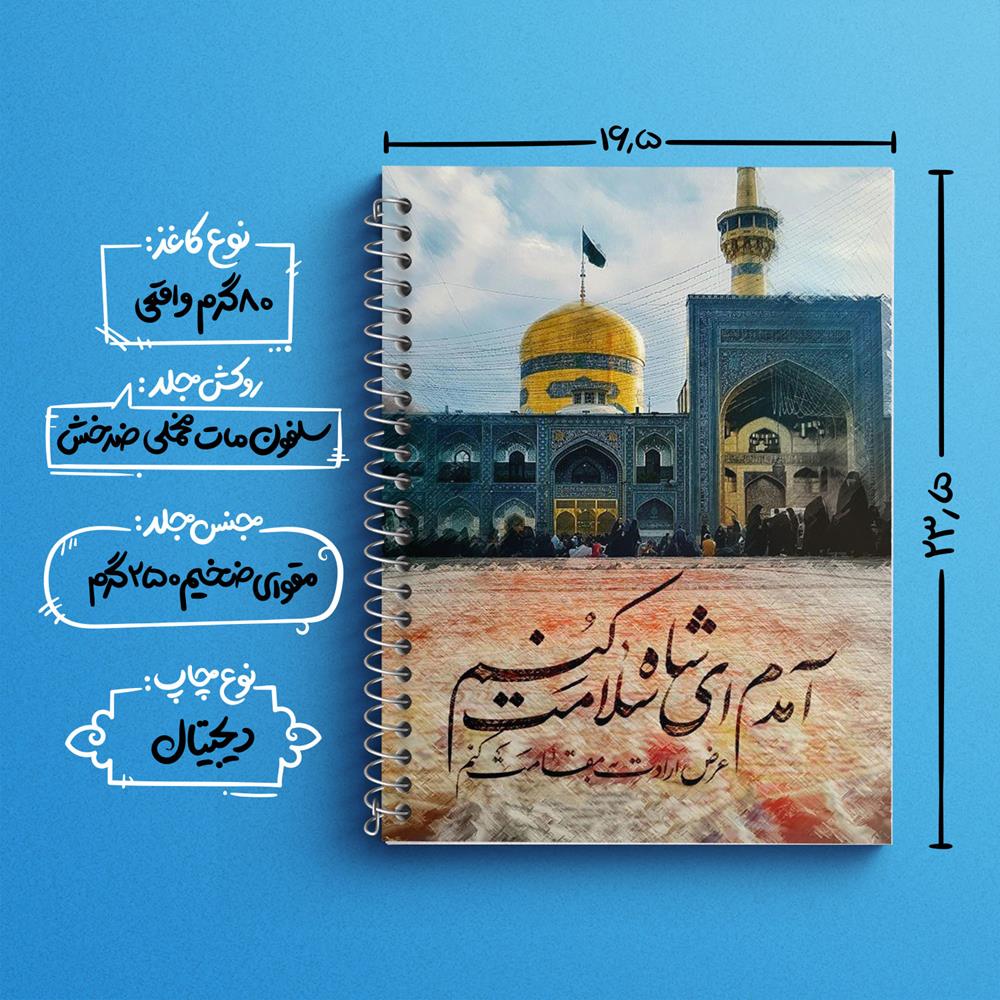 ۱۶٫۵
۲۳٫۵
نوع کاغذ:
۸۰گرم واقعی
روکش جلد:
سلفون مات مخملی ضدخش
جنس جلد:
مقوای ضخیم ۲۵۰ گرم
نوع چاپ:
دیجیتال
آمدم ای شاه سلامت کنم
عرض ارادت به مقامت کنم